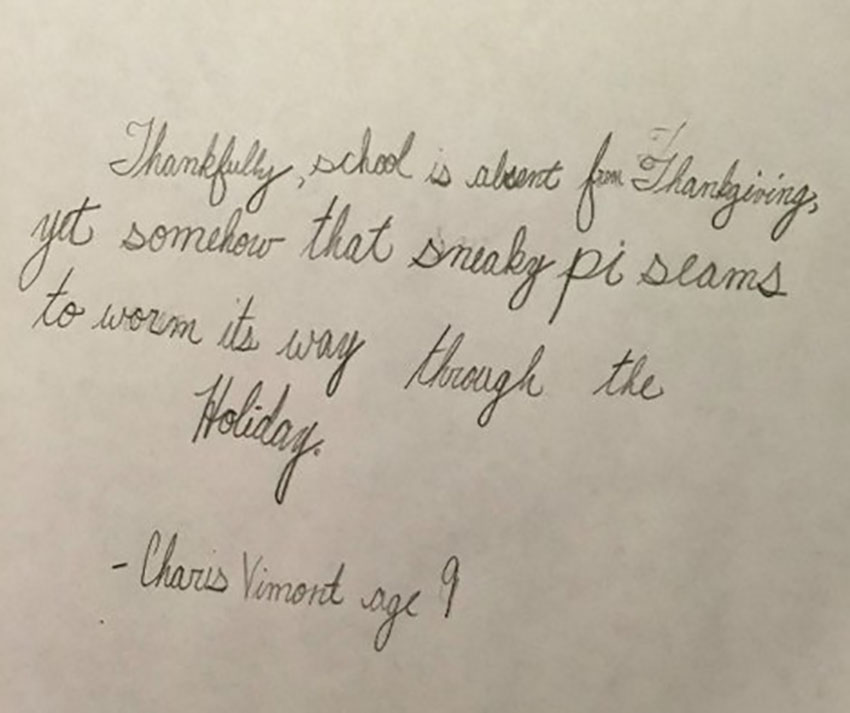 Thankfully, school is absent from Thankgiving,
yet somehow that sneaky pi seams
to worm its way through the
Holiday.
- Charis Vimont age 9